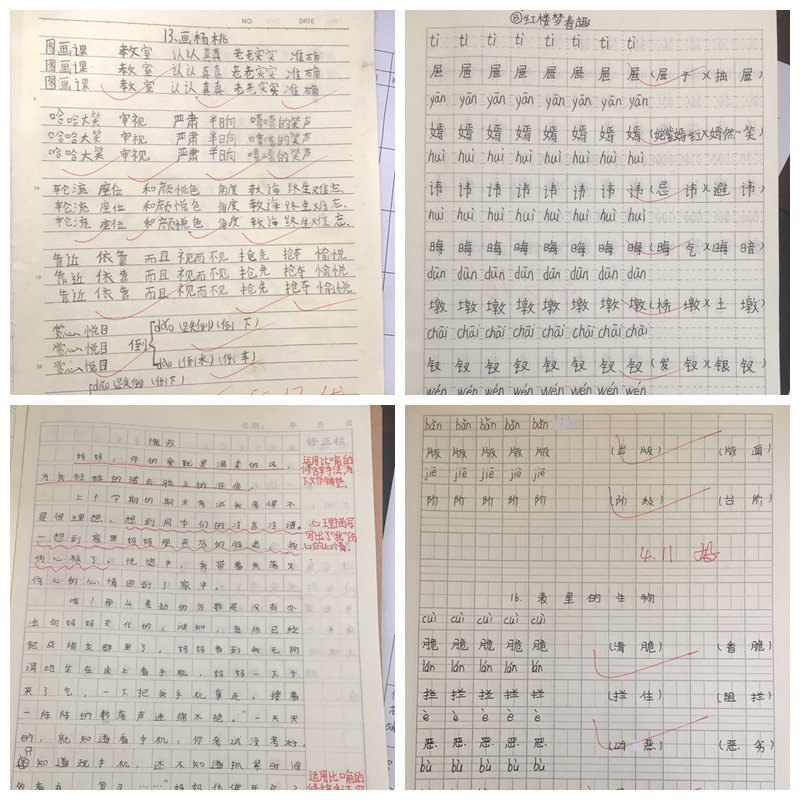 NO DATE
13.画杨桃
图画课 教室 认认真真 老老实实 准确
图画课 教室 认认真真 老老实实 准确
图画课 教室 认认真真 老老实实 准确
哈哈大笑 审视 严肃 半晌 嘻嘻的笑声
哈哈大笑 审视 严肃 半晌 嘻嘻的笑声
哈哈大笑 审视 严肃 半晌 嘻嘻的笑声
轮流 座位 和颜悦色 角度 教诲 终生难忘
轮流 座位 和颜悦色 角度 教诲 终生难忘.
轮流 座位 和颜悦色 角度 教诲 终生难忘.
靠近 依靠 而且 视而不见 抢先 抢夺 愉悦
靠近 依靠 而且 视而不见 抢先 抢夺 愉悦
靠近 依靠 而且 视而不见 抢先 抢夺 愉悦
赏心悦目
赏心悦目
赏心悦目
倒
dǎo (倒下)
dào (倒水)(倒车)
⑧红楼梦春趣
tì tì tì tì tì tì tì tì
屉 屉 屉 屉 屉 屉 屉 屉 (屉子)(抽屉)
yān yān yān yān yān yān yān
嫣 嫣 嫣 嫣 嫣 嫣 嫣 嫣 (嫣红)(嫣然一笑)
huì huì huì huì huì huì huì huì
讳 讳 讳 讳 讳 讳 讳 讳 (忌讳)(避讳)
huì huì huì huì huì huì huì huì
晦 晦 晦 晦 晦 晦 晦 晦 (晦气)(晦暗)
dūn dūn dūn dūn dūn dūn dūn dūn
墩 墩 墩 墩 墩 墩 墩 墩 (桥墩)(土墩)
chāi chāi chāi chāi chāi chāi chāi
钗 钗 钗 钗 钗 钗 钗 钗 (发钗)(银钗)
wén wén wén wén wén wén wén wén
日期: 年 月 日
愧疚
修正栏
妈妈,你的爱就是温柔的风,
为我轻轻的
上个学期的期末考试我考得不
是很理想,想到同学们的冷言冷语,
一想到家里妈妈那
伤心极了。恍惚中,我带着失落又
伤心的心情回到了家中。
唉!那么差劲的分数是没有办
法向妈妈交代的,谁知,老师已经
把成绩发群里了。妈妈看到我无所
谓地坐在床上看手机,妈妈一下子
来了气,一下把我手机拿走。接着
一阵阵的教育声连绵不绝。“一天天
的,就知道看手机,你考试没考好,
只知道玩手机,还不知道抓紧时间
运用比喻的
修辞手法,为
下文作铺垫。
心理描写
写出了“我”伤
心的心情。
运用比喻的
bǎn bǎn bǎn bǎn bǎn
版 版 版 版 版 (出版) (版面)
jiē jiē jiē jiē jiē
阶 阶 阶 阶 阶 (阶级) (台阶)
4.11
16.表里的生物
cuì cuì cuì cuì cuì
脆 脆 脆 脆 脆 (清脆) (香脆)
lán lán lán lán lán
拦 拦 拦 拦 拦 (拦住) (阻拦)
è è è è è
恶 恶 恶 恶 恶 (凶恶) (恶劣)
bù bù bù bù bù